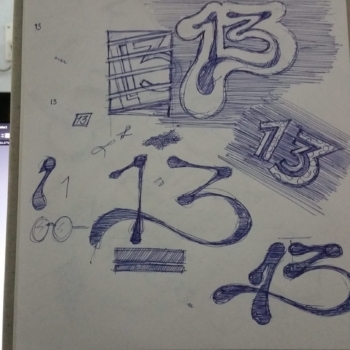 13
13
13
13
13
1
13
13